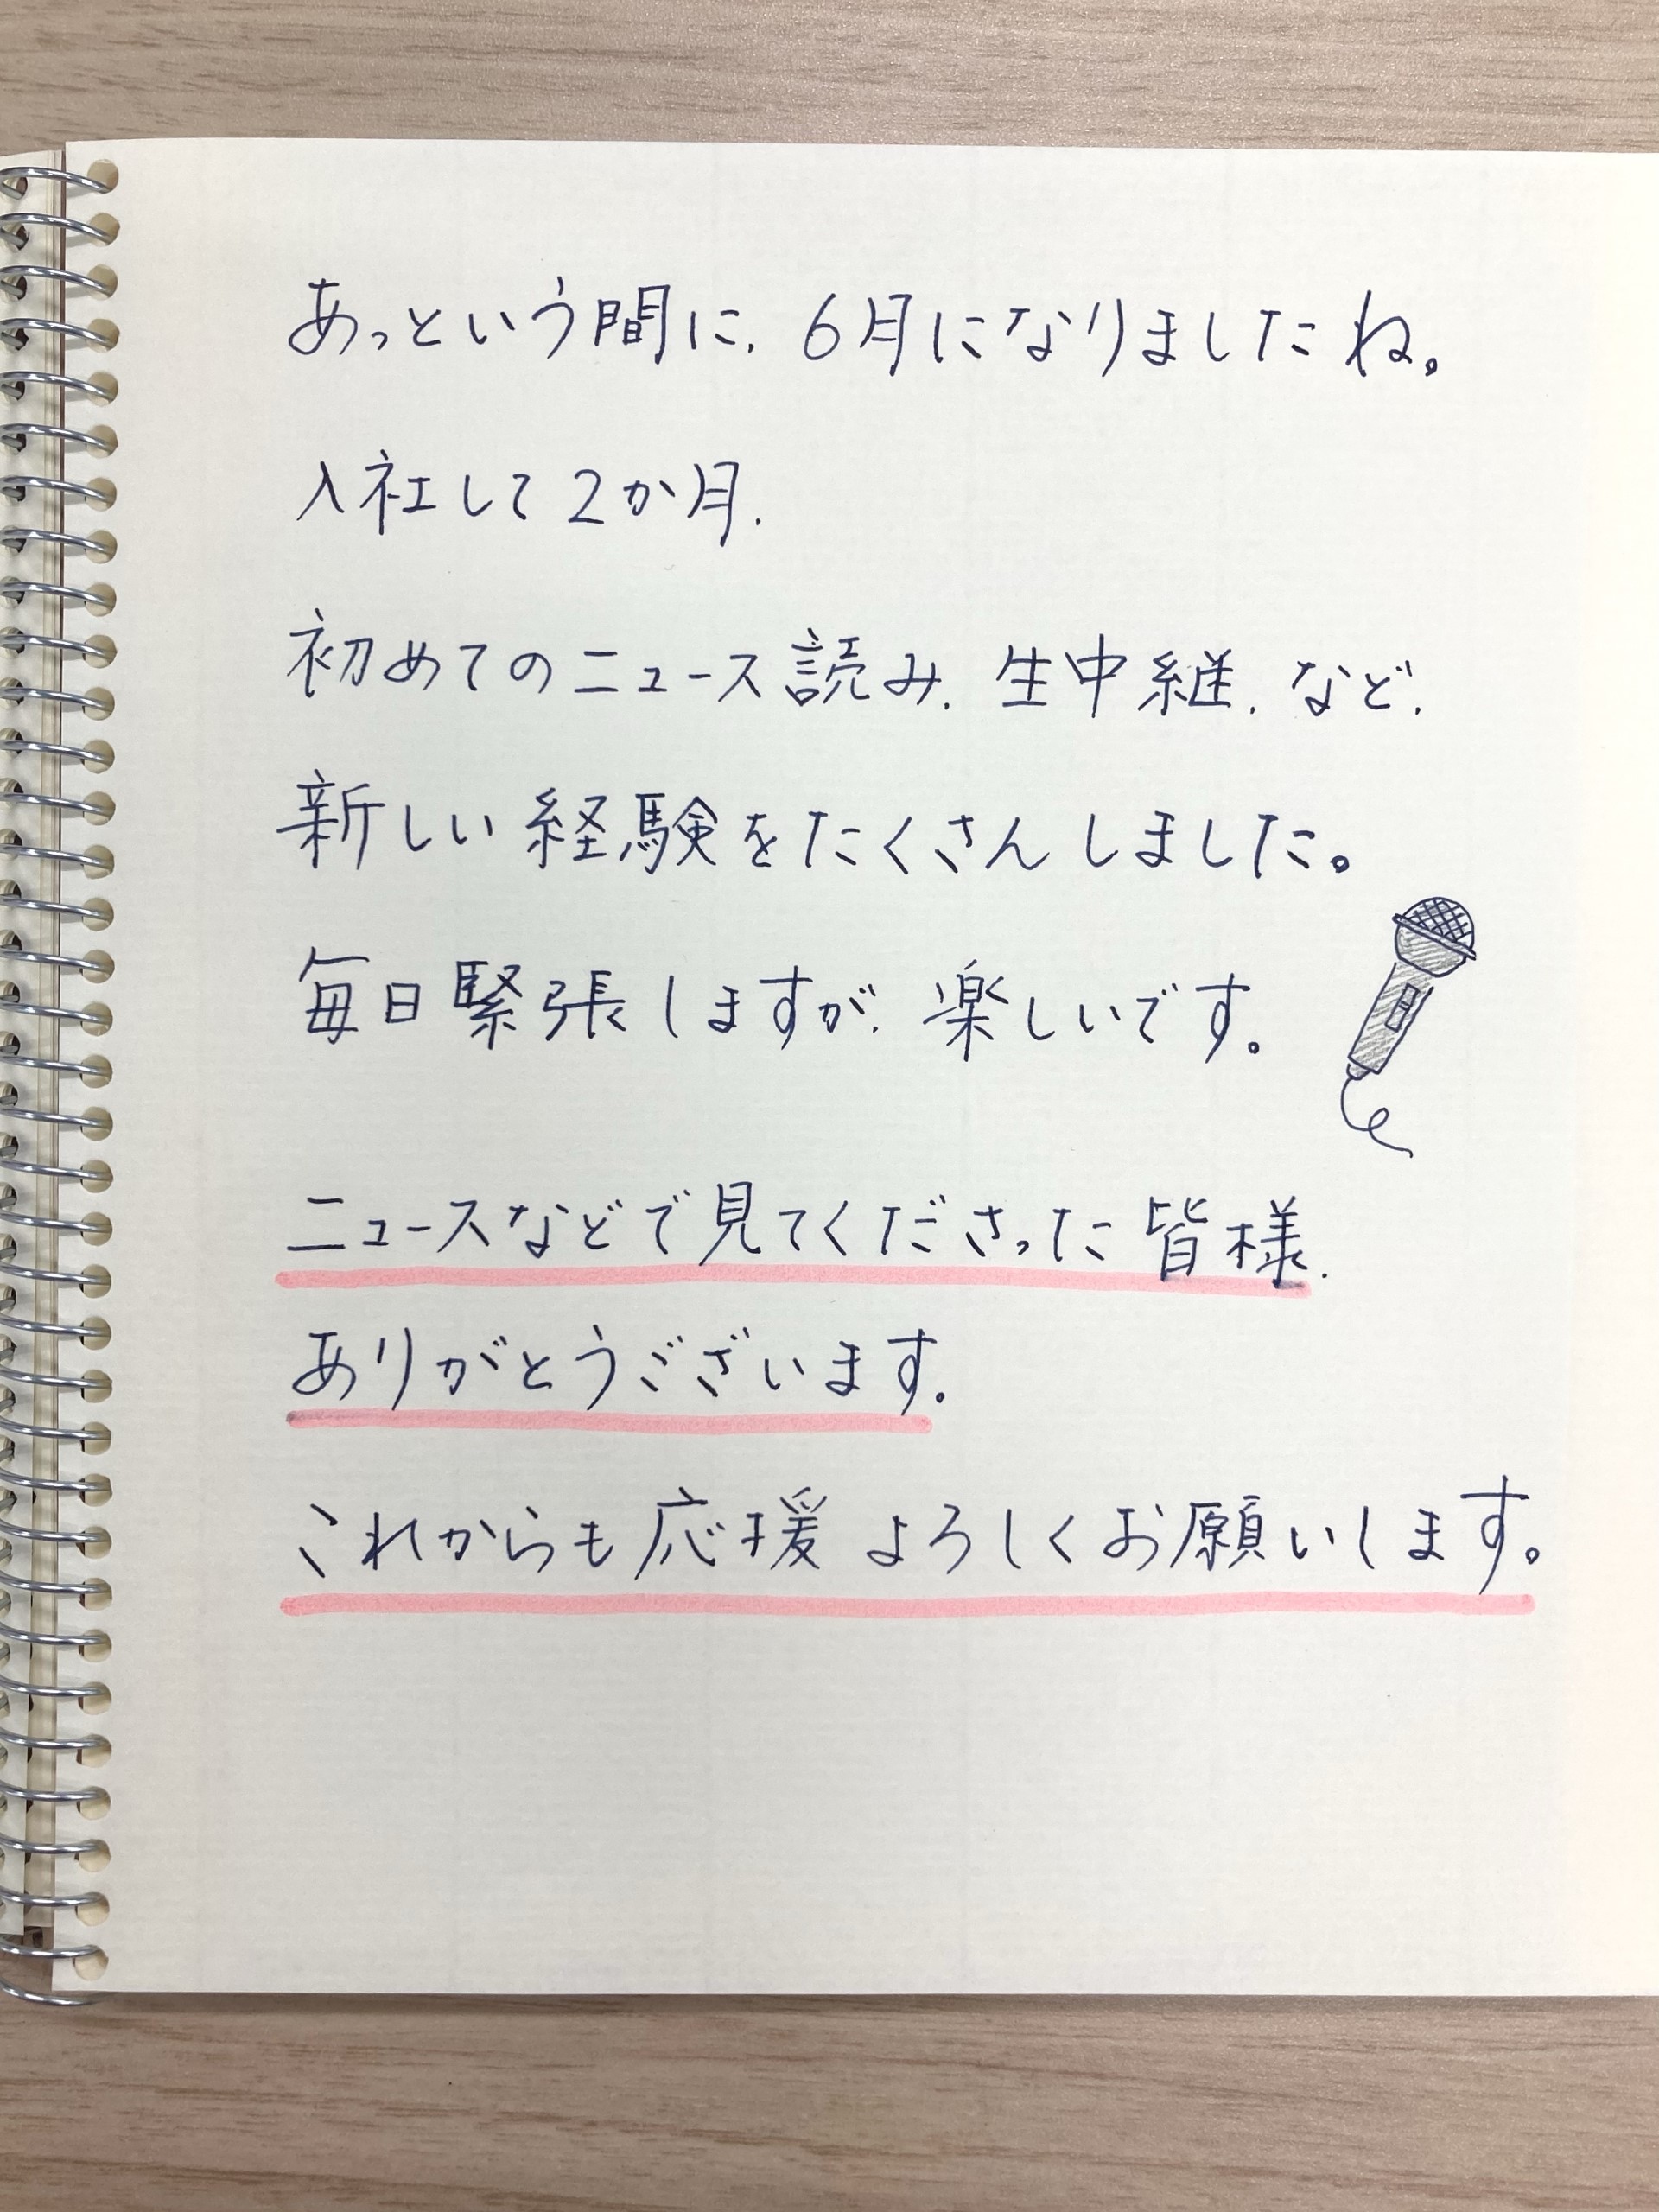 あっという間に、6月になりましたね。
入社して2か月、
初めてのニュース読み、生中継、など、
新しい経験をたくさんしました。
毎日緊張しますが、楽しいです。
ニュースなどで見てくださった皆様、
ありがとうございます。
これからも応援よろしくお願いします。